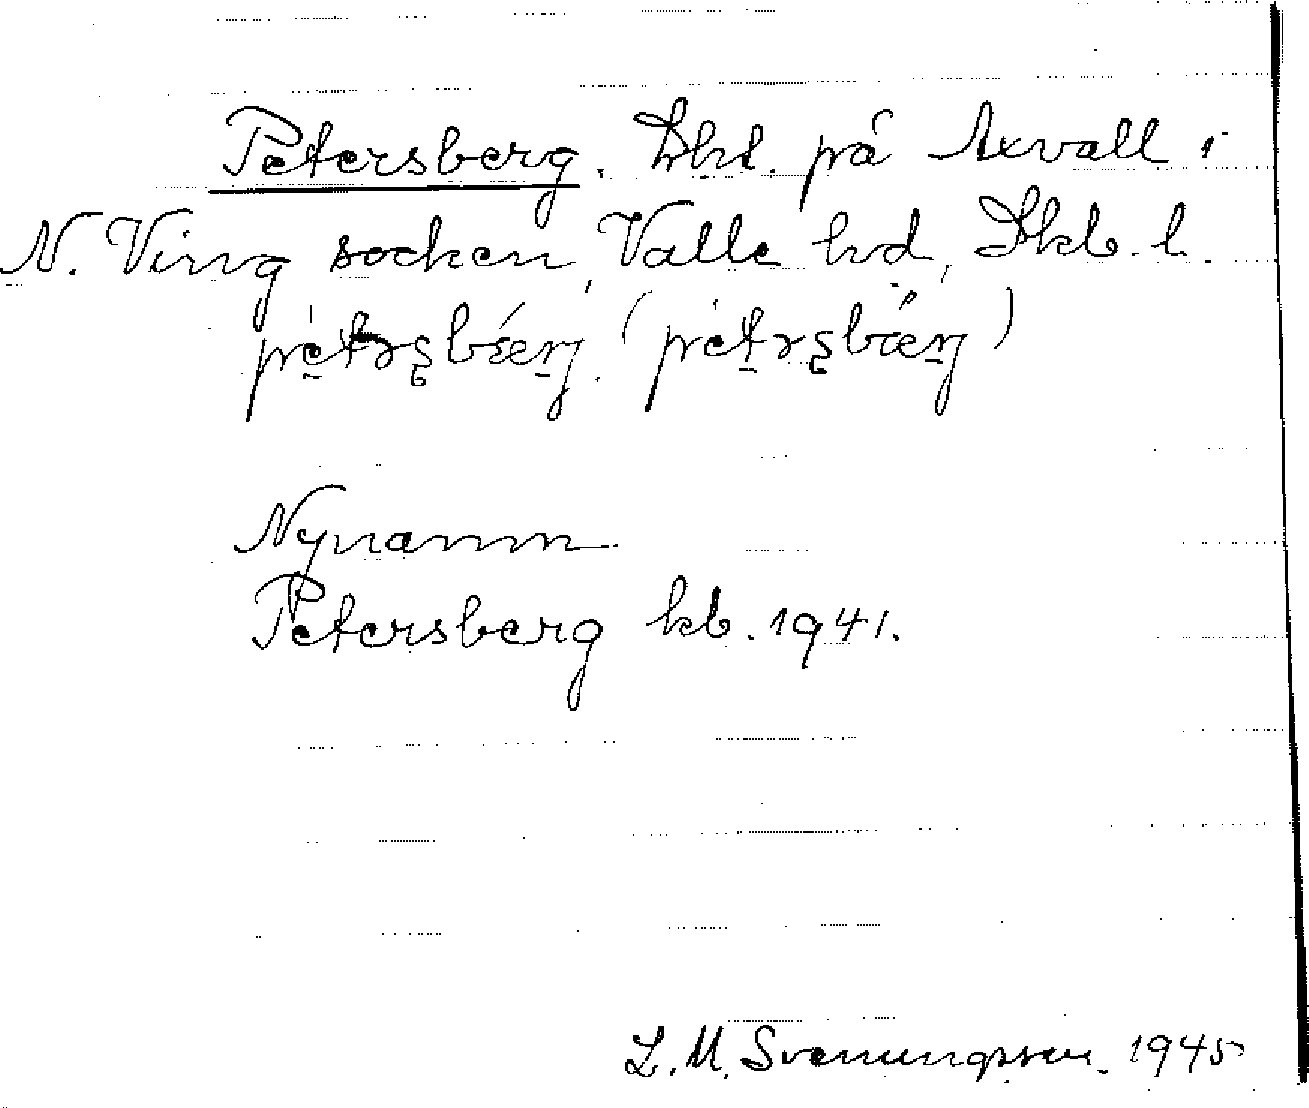 Petersberg. Lht. på Axvall i
N. Ving socken, Valle hd, Skb. l.
pètrsbærj. (pètrsbærj)
Nynamn.
Petersberg kb. 1941.
L. M. Svenungsson. 1945